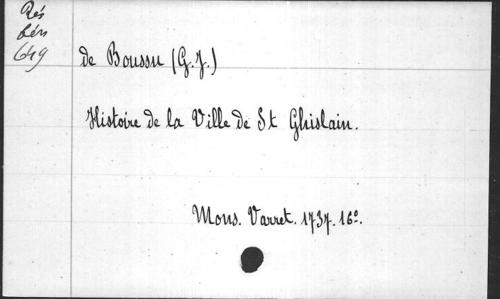 Rés
bén
649
de Boussu (G.J.)
Histoire de la Ville de St Ghislain.
Mons. Varret. 1737. 16º.